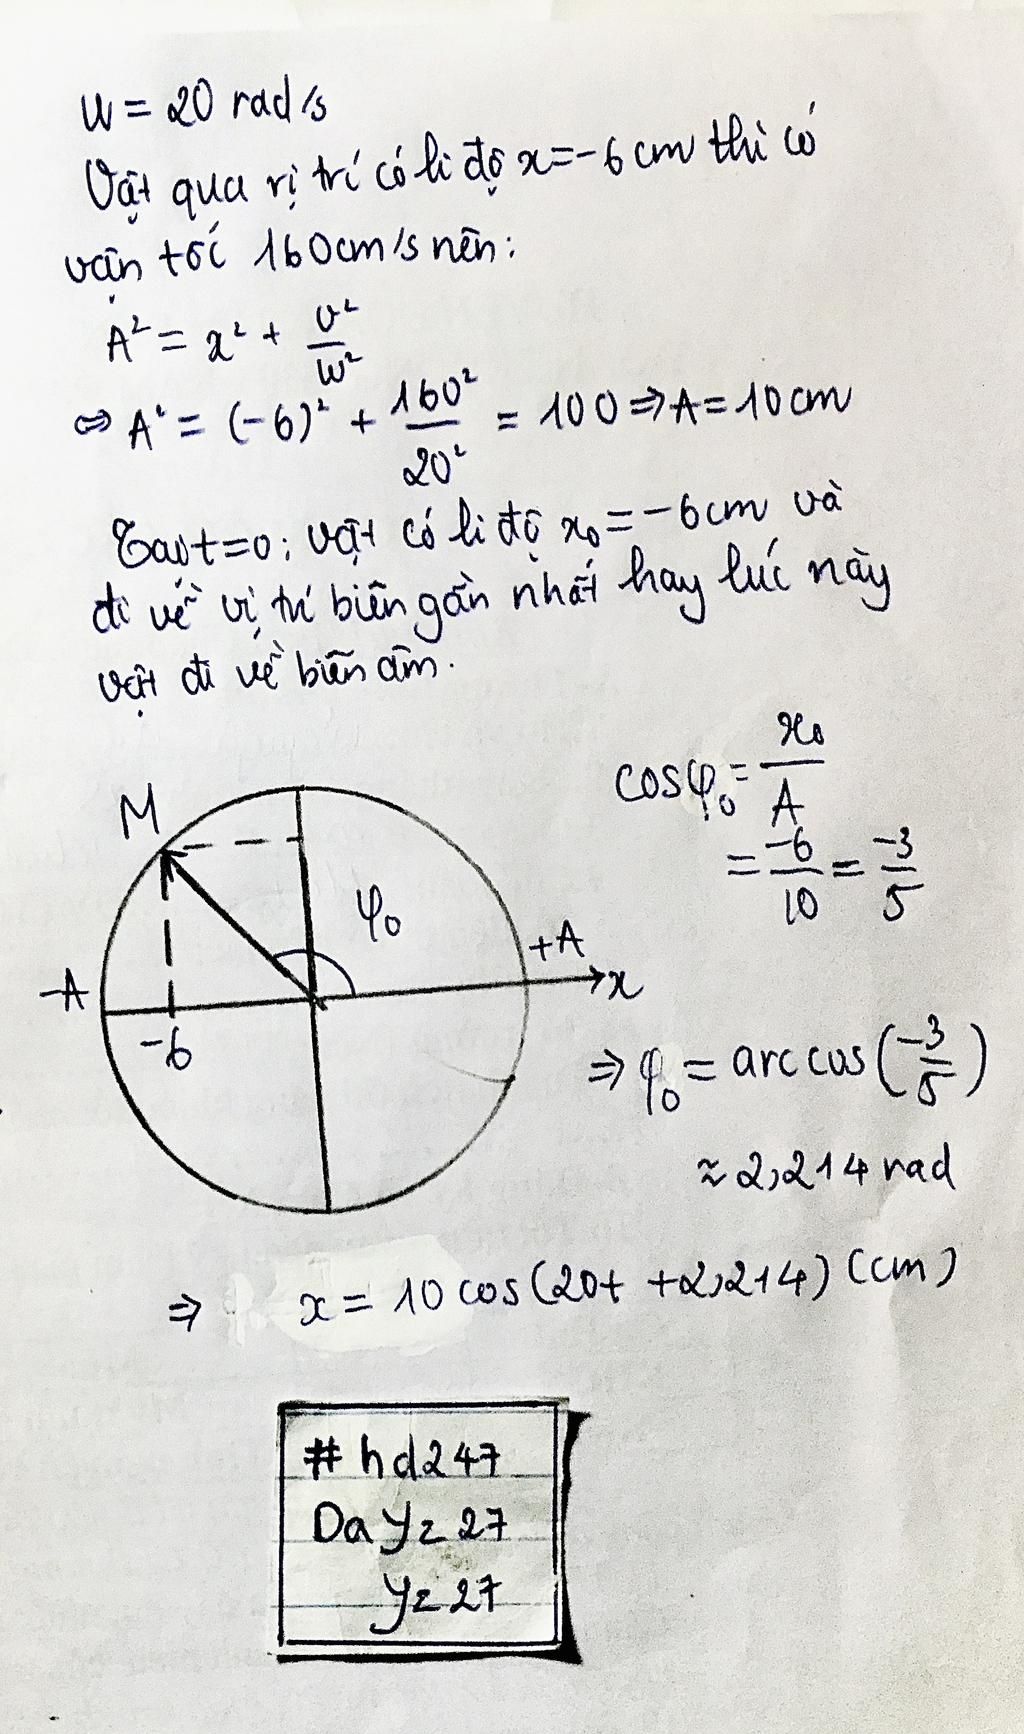 ω = 20 rad/s
Vật qua vị trí có li độ x = -6 cm thì có
vận tốc 160cm/s nên:
A² = x² + v²/ω²
⇔ A² = (-6)² + 160²/20² = 100 ⇒ A = 10 cm
Tại t=0: vật có li độ x₀ = -6cm và
đi về vị trí biên gần nhất hay lúc này
vật đi về biên âm.
cosφ₀ = x₀/A
= -6/10 = -3/5
M
φ₀
+A
-A
x
-6
⇒ φ₀ = arccos(-3/5)
≈ 2,214 rad
⇒ x = 10 cos(20t + 2,214) (cm)
#hd247
Dayz27
yz27